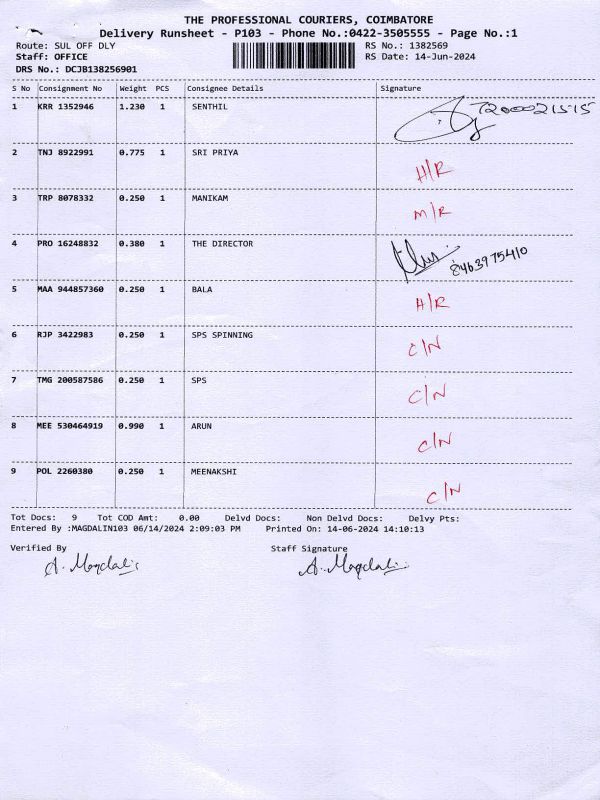 THE PROFESSIONAL COURIERS, COIMBATORE
Delivery Runsheet - P103 - Phone No.:0422-3505555 - Page No.:1
Route: SUL OFF DLY RS No.: 1382569
Staff: OFFICE RS Date: 14-Jun-2024
DRS No.: DCJB138256901
S No Consignment No Weight PCS Consignee Details Signature
1 KRR 1352946 1.230 1 SENTHIL 7200021515
2 TNJ 8922991 0.775 1 SRI PRIYA H/R
3 TRP 8078332 0.250 1 MANIKAM M/R
4 PRO 16248832 0.380 1 THE DIRECTOR 8463975410
5 MAA 944857360 0.250 1 BALA H/R
6 RJP 3422983 0.250 1 SPS SPINNING C/N
7 TMG 200587586 0.250 1 SPS C/N
8 MEE 530464919 0.990 1 ARUN C/N
9 POL 2260380 0.250 1 MEENAKSHI C/N
Tot Docs: 9 Tot COD Amt: 0.00 Delvd Docs: Non Delvd Docs: Delvy Pts:
Entered By :MAGDALIN103 06/14/2024 2:09:03 PM Printed On: 14-06-2024 14:10:13
Verified By Staff Signature
A. Magdalin A. Magdalin